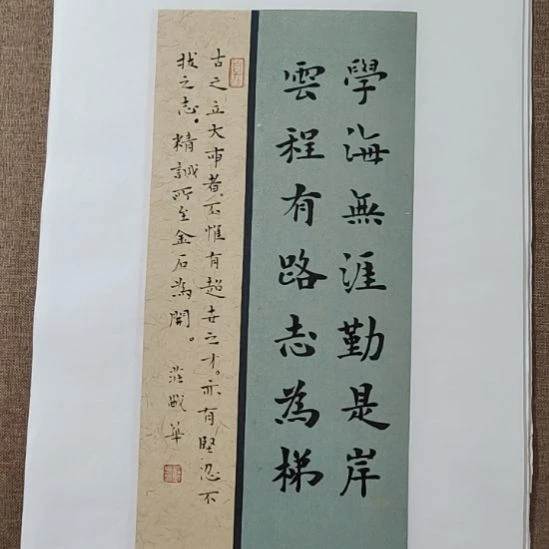 學海無涯勤是岸
雲程有路志為梯
古之立大事者不惟有超世之才。亦有堅忍不
拔之志。精誠所至金石為開。